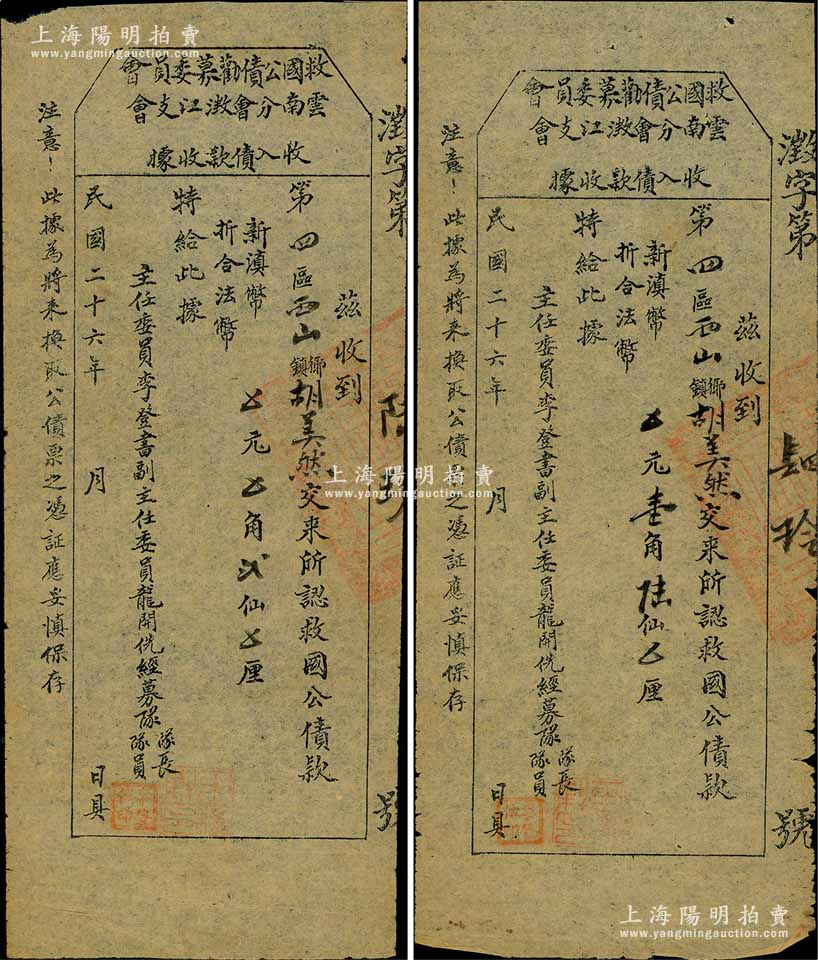 上海陽明拍賣
www.yangmingauction.com
救國公債勸募委員會
雲南分會澂江支會
收入債款收據
澂字第
號
茲收到
第四區西山鄉鎮胡美然交來所認救國公債款
新滇幣
折合法幣
元 角 弍仙 厘
特給此據
主任委員李登書副主任委員龍開侁經募隊隊長隊員
民國二十六年 月 日具
注意!此據為將來換取公債票之憑証應妥慎保存
上海陽明拍賣
www.yangmingauction.com
上海陽明拍賣
www.yangmingauction.com
救國公債勸募委員會
雲南分會澂江支會
收入債款收據
澂字第
號
茲收到
第四區西山鄉鎮胡美然交來所認救國公債款
新滇幣
折合法幣
元壹角陆仙 厘
特給此據
主任委員李登書副主任委員龍開侁經募隊隊長隊員
民國二十六年 月 日具
注意!此據為將來換取公債票之憑証應妥慎保存
上海陽明拍賣
www.yangmingauction.com
上海陽明拍賣
www.yangmingauction.com